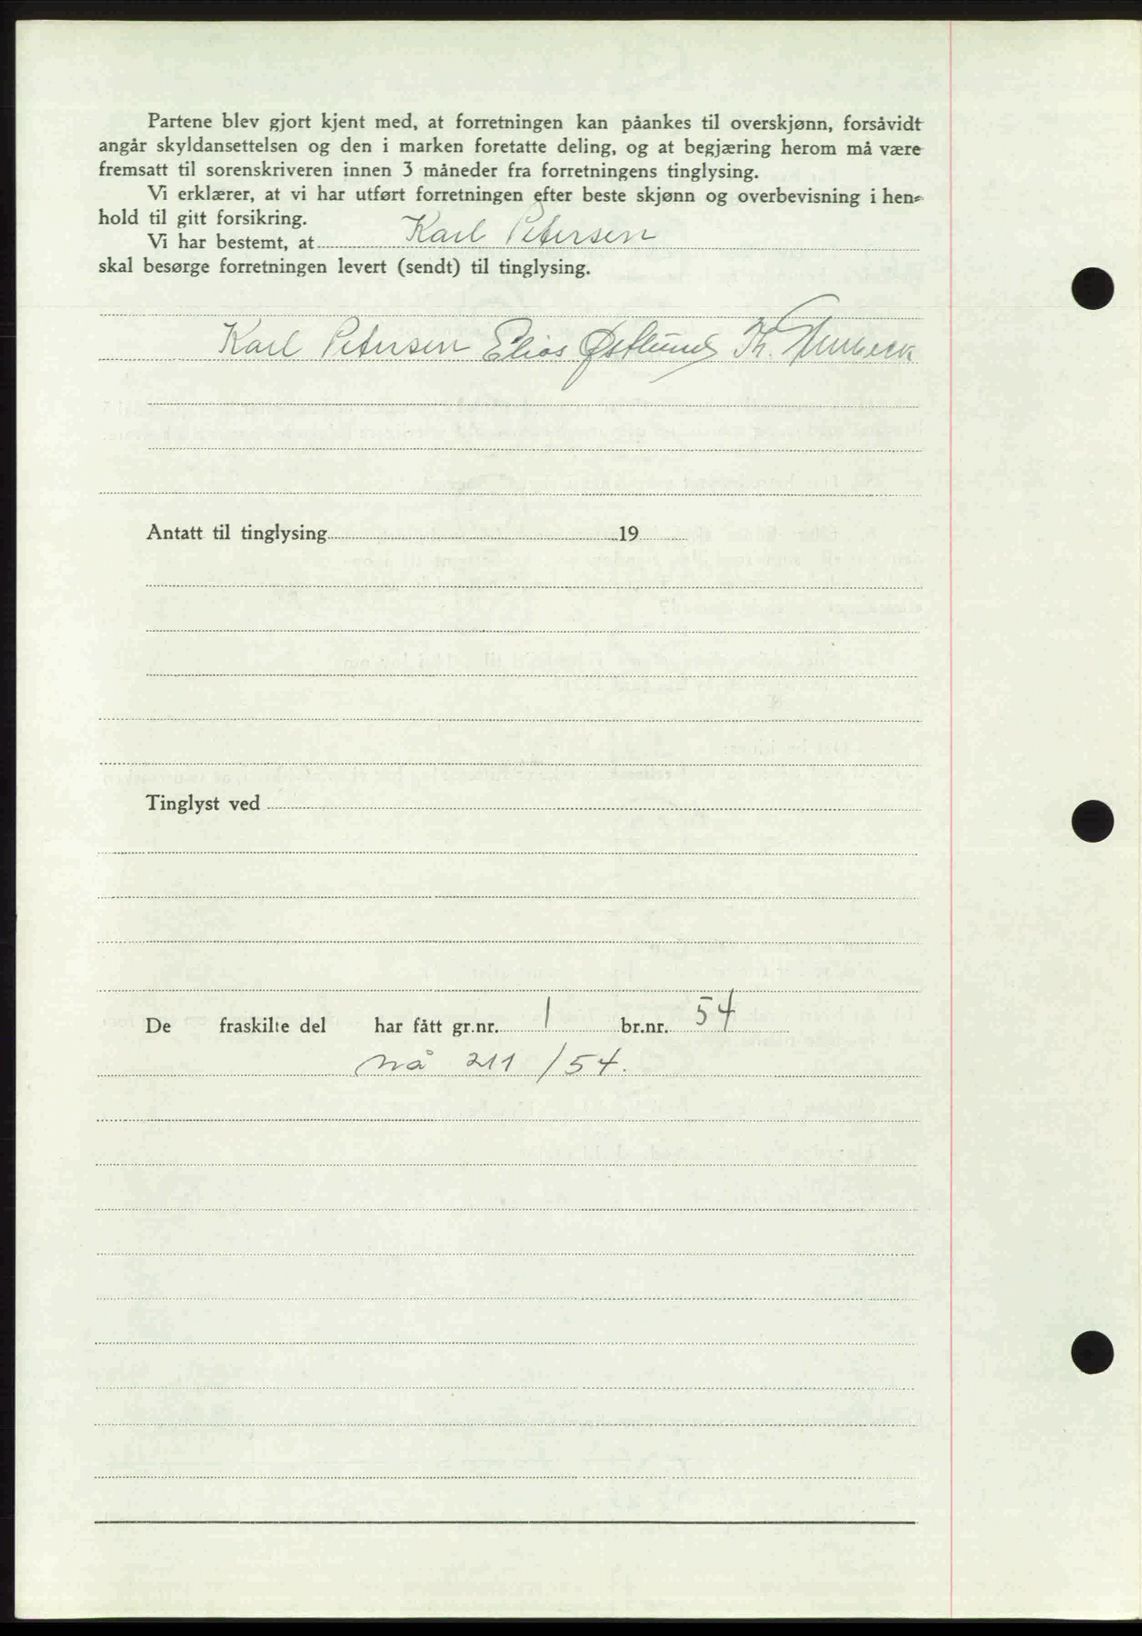 Partene blev gjort kjent med, at forretningen kan påankes til overskjønn, forsåvidt
angår skyldansettelsen og den i marken foretatte deling, og at begjæring herom må være
fremsatt til sorenskriveren innen 3 måneder fra forretningens tinglysing.
Vi erklærer, at vi har utført forretningen efter beste skjønn og overbevisning i hen-
hold til gitt forsikring.
Vi har bestemt, at Karl Petersen
skal besørge forretningen levert (sendt) til tinglysing.
Karl Petersen Elias Østlund Th.
Antatt til tinglysing 19
Tinglyst ved
De fraskilte del har fått gr.nr. 1 br.nr. 54
nå 211/54.